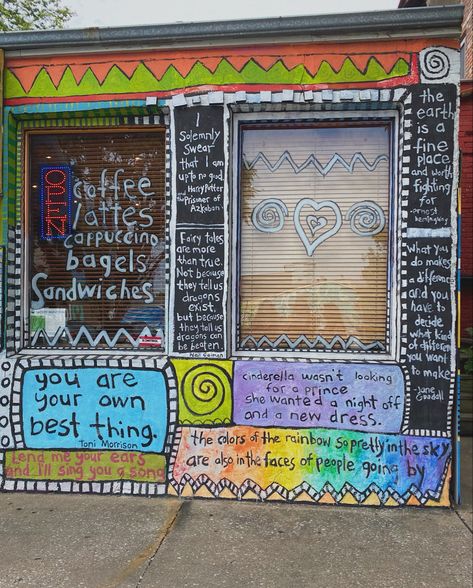 OPEN
coffee
lattes
cappuccino
bagels
Sandwiches
I
Solemnly
Swear
that I
am up
to no good
-Harry Potter
and the
Prisoner of
Azkaban
Fairy tales
are more
than true.
Not because
they tell us
dragons
exist,
but because
they tell us
dragons can
be beaten.
Neil Gaiman
the
earth
is a
fine
place
and worth
fighting
for
-ernest
hemingway
What you
do makes
a difference
and you
have to
decide
what kind
of difference
you want
to make
-Jane
Goodall
you are
your own
best thing.
Toni Morrison
lend me your ears
and i'll sing you a song
cinderella wasn't looking
for a prince
she wanted a night off
and a new dress.
the colors of the rainbow so pretty in the sky
are also in the faces of people going by